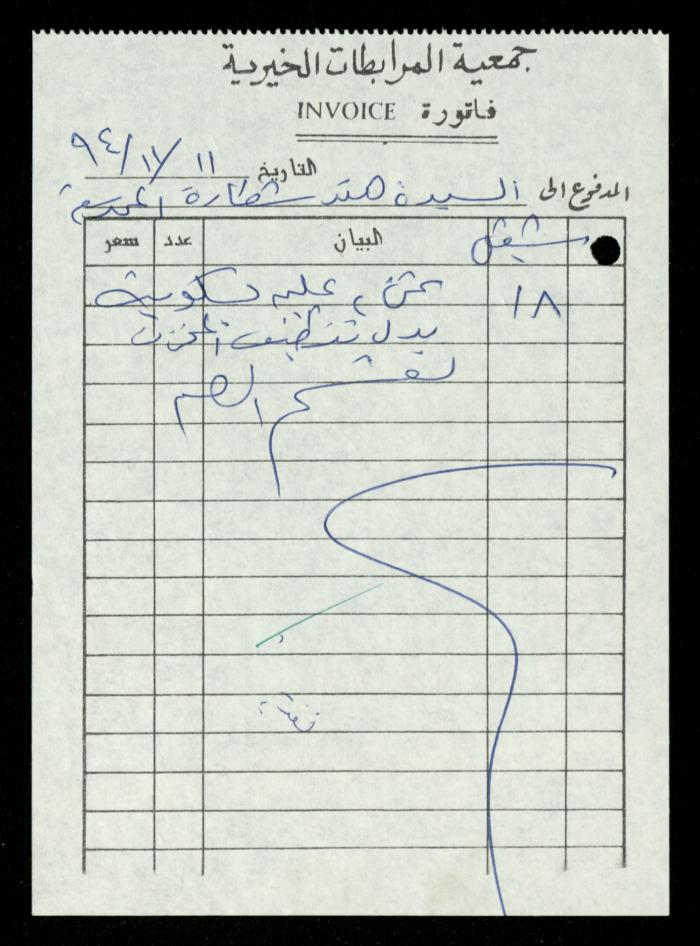 جمعية المرابطات الخيرية
فاتورة INVOICE
التاريخ ١١/١٢/٩٤
المدفوع الى السيدة هند شطارة المحترمة
شيقل البيان عدد سعر
١٨ ثمن علبة بسكويت
بدل تنظيف المخزن
لقسم الصم
نقدا